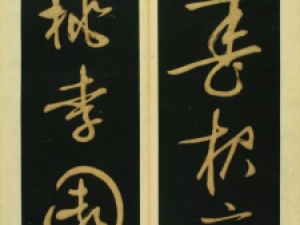 春夜
桃李園